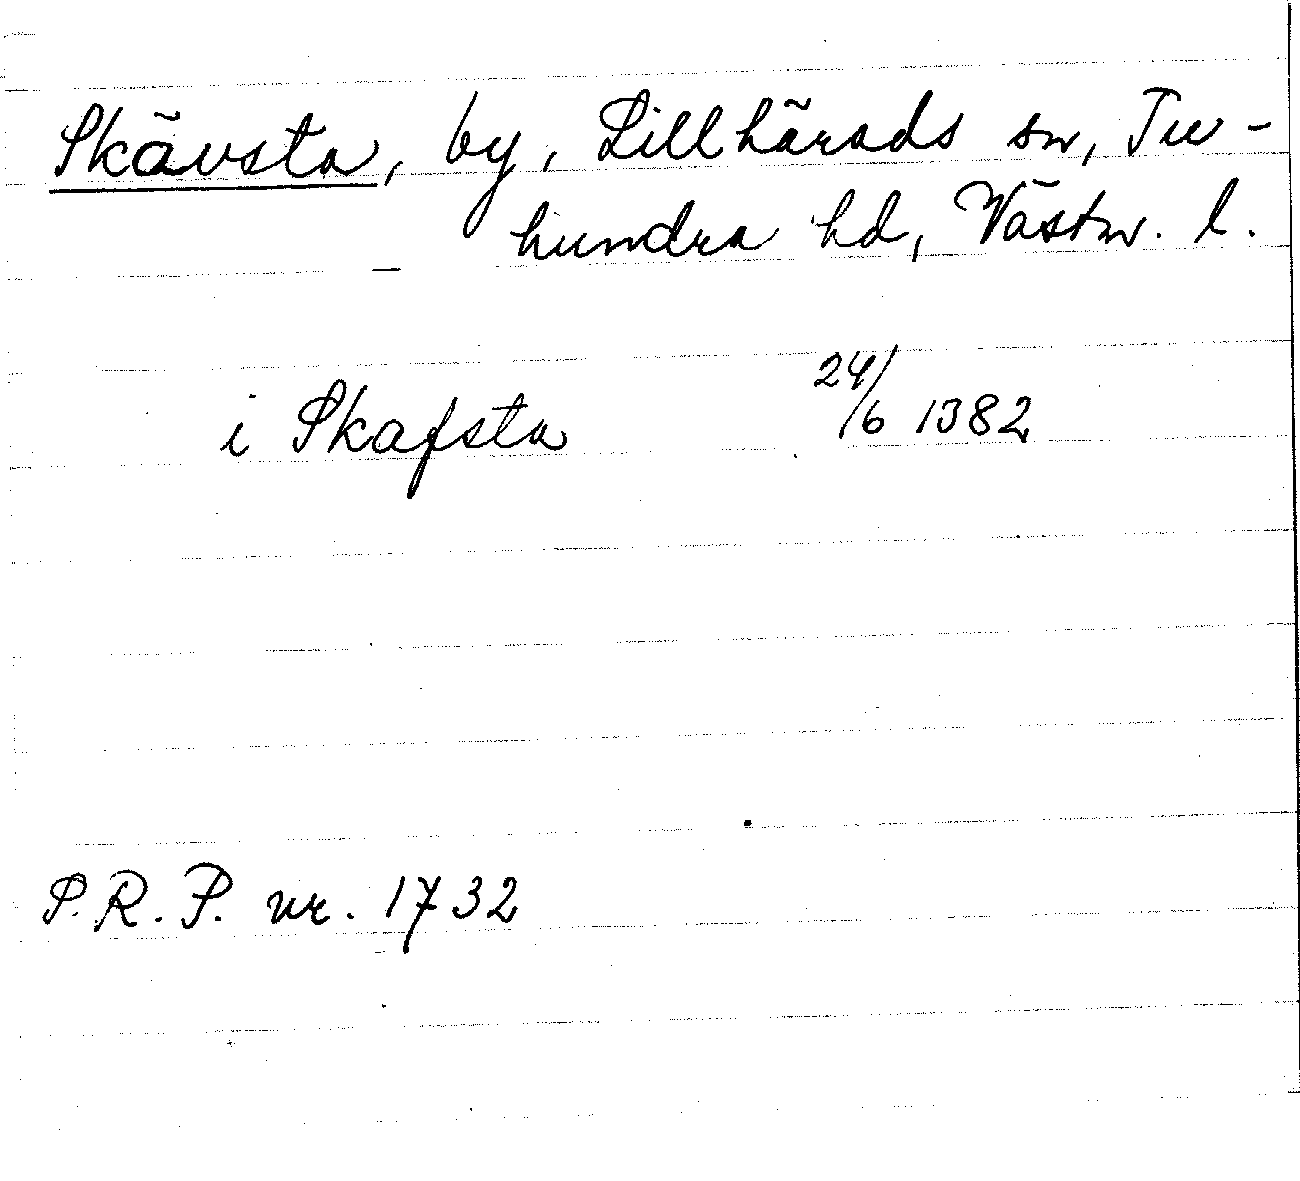 Skävsta, by, Lillhärads sn, Tu-
hundra hd, Västm. l.
i Skafsta 24/6 1382
P.R.P. nr. 1732